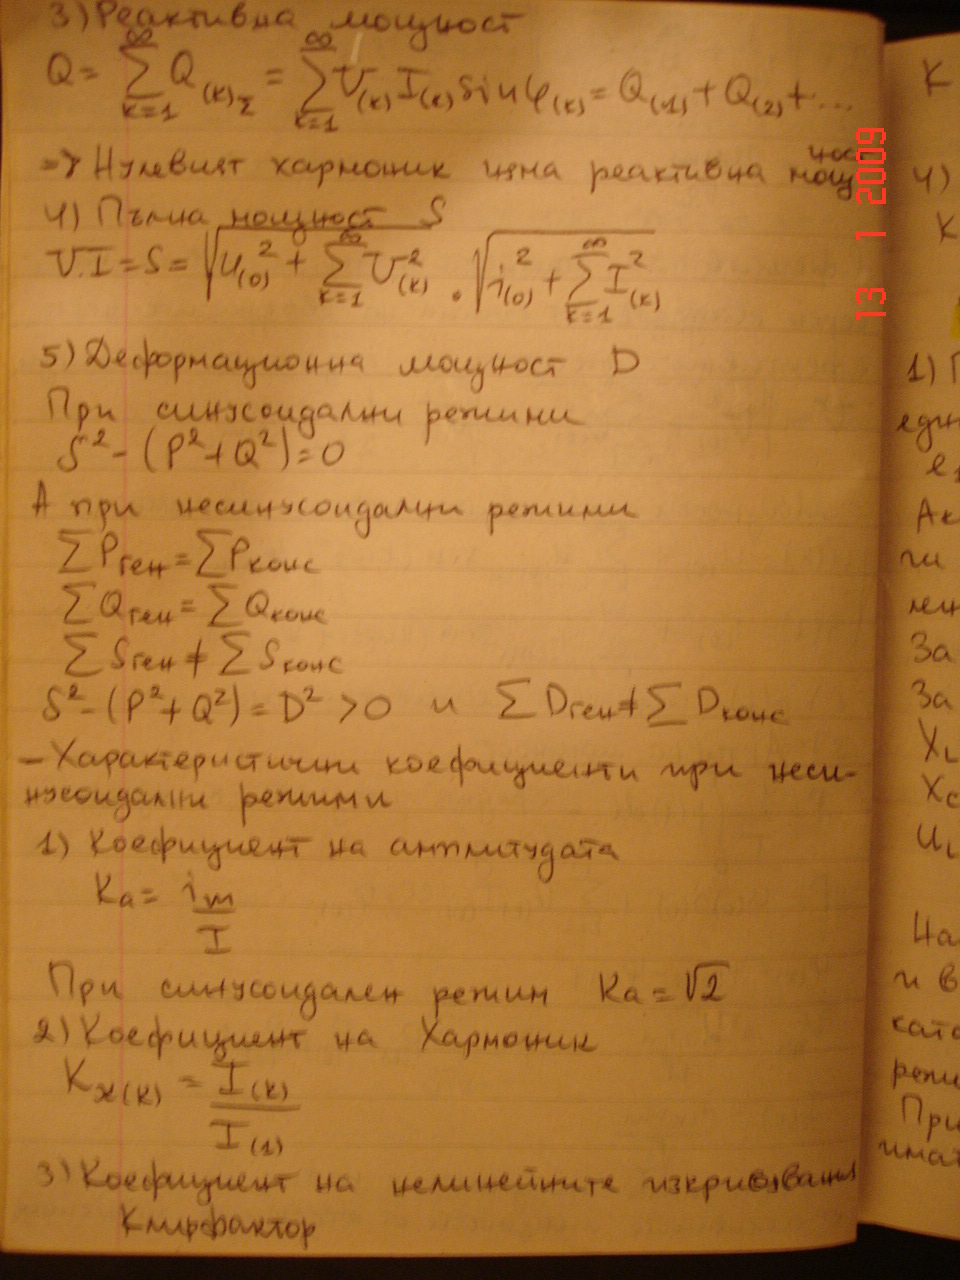 3) Реактивна мощност
Q = ∞∑k=1 Q(k)Σ = ∞∑k=1 U(k) I(k) sin φ(k) = Q(1) + Q(2) + ...
=> Нулевият хармоник няма реактивна мощност
4) Пълна мощност S
U.I = S = √(u(0)² + ∞∑k=1 U(k)²) . √(i(0)² + ∞∑k=1 I(k)²)
5) Деформационна мощност D
При синусоидални режими
S² - (P² + Q²) = 0
А при несинусоидални режими
∑Pген = ∑Pконс
∑Qген = ∑Qконс
∑Sген ≠ ∑Sконс
S² - (P² + Q²) = D² > 0 и ∑Dген ≠ ∑Dконс
- Характеристични коефициенти при неси-
нусоидални режими
1) Коефициент на амплитудата
Ka = im / I
При синусоидален режим Ka = √2
2) Коефициент на Хармоник
Kх(k) = I(k) / I(1)
3) Коефициент на нелинейните изкривявания
Клирфактор
13 1 2009
К
4)
К
1) П
един
e1
Ак
ги
лен
За
За
XL
XC
UL
На
и в
като
режи
При
имат